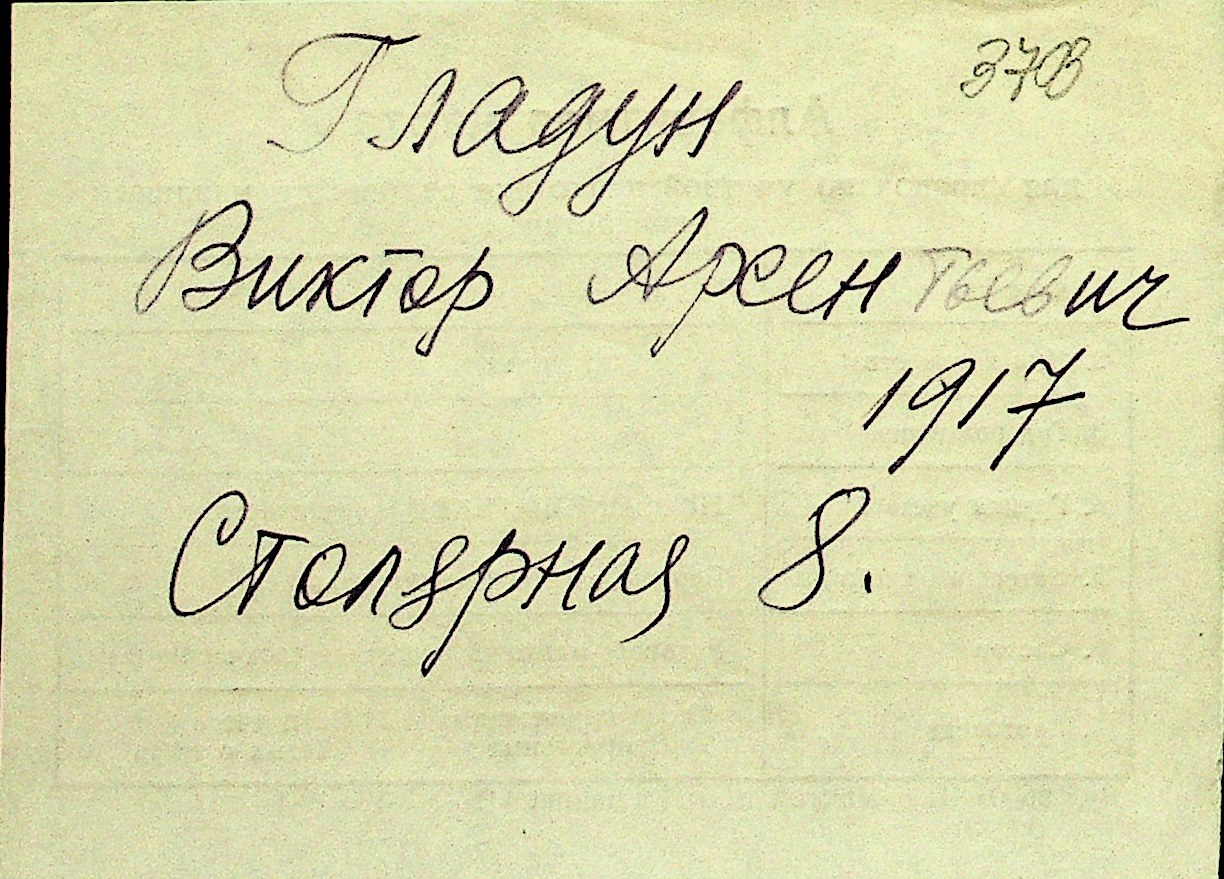 Гладун
Виктор Арсентьевич
1917
Столярная 8.